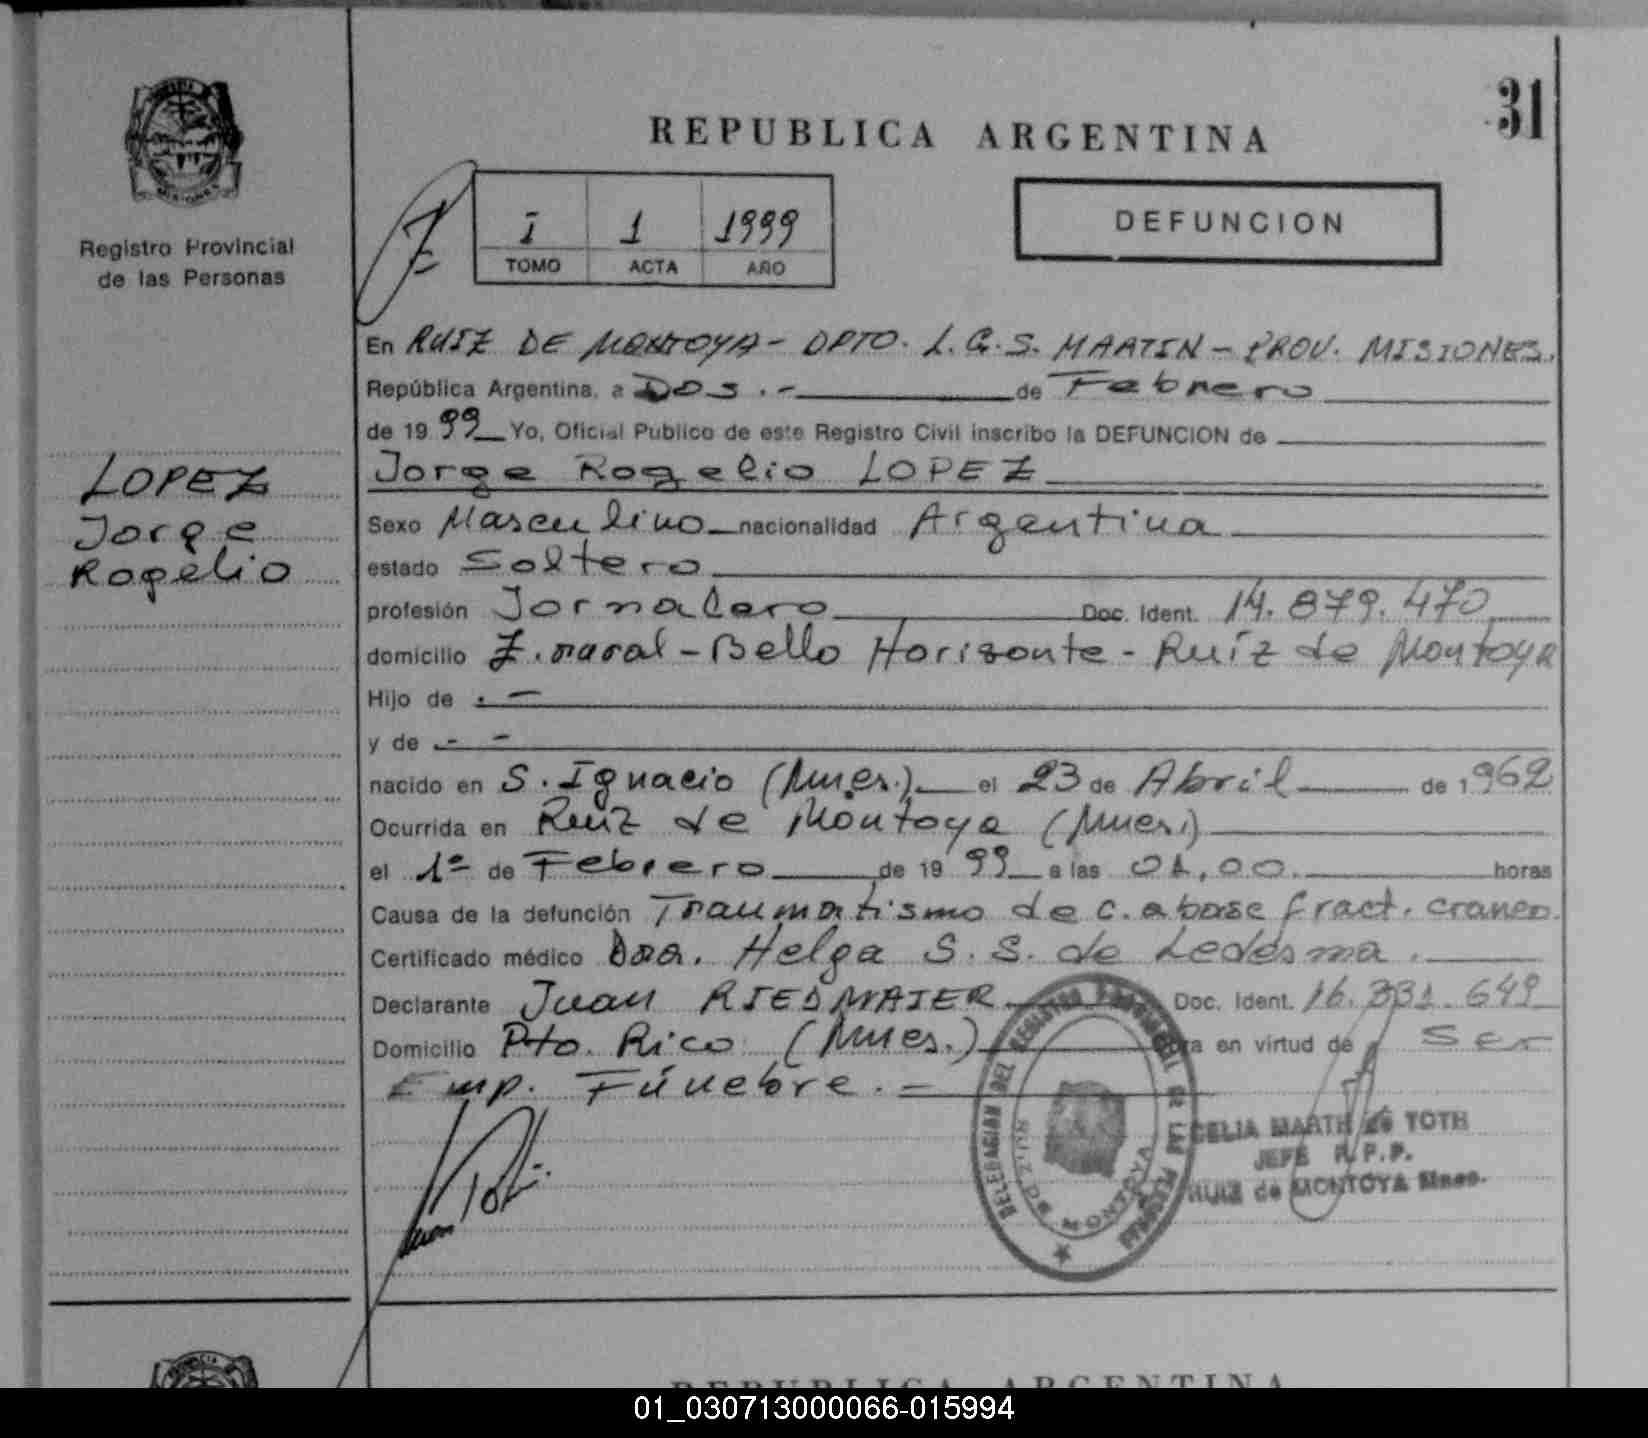 31
REPUBLICA ARGENTINA
DEFUNCION
I 1 1999
TOMO ACTA AÑO
MISIONES
Registro Provincial
de las Personas
LOPEZ
Jorge
Rogelio
En RUIZ DE MONTOYA - DPTO. L.G.S. MARTIN - PROV. MISIONES.
República Argentina, a Dos.- de Febrero
de 1999 Yo, Oficial Publico de este Registro Civil inscribo la DEFUNCION de
Jorge Rogelio LOPEZ
Sexo Masculino nacionalidad Argentina
estado Soltero
profesión Jornalero Doc. Ident. 14.879.470
domicilio Z. rural - Bello Horizonte - Ruíz de Montoya
Hijo de .-
y de .- -
nacido en S. Ignacio (Mnes.) el 23 de Abril de 1962
Ocurrida en Ruiz de Montoya (Mnes.)
el 1º de Febrero de 1999 a las 01,00. horas
Causa de la defunción Traumatismo de c. a base fract. craneo.
Certificado médico Dra. Helga S. S. de Ledesma.
Declarante Juan RIEDMAIER Doc. Ident. 16.331.649
Domicilio Pto. Rico (Mnes.) en virtud de Ser
Emp. Fúnebre.=
DELEGACION DEL REGISTRO PROVINCIAL DE LAS PERSONAS
RUIZ DE MONTOYA
CELIA MARTH de TOTH
JEFE R.P.P.
RUIZ de MONTOYA Mnes.
PROVINCIA DE
REPUBLICA ARGENTINA
01_030713000066-015994